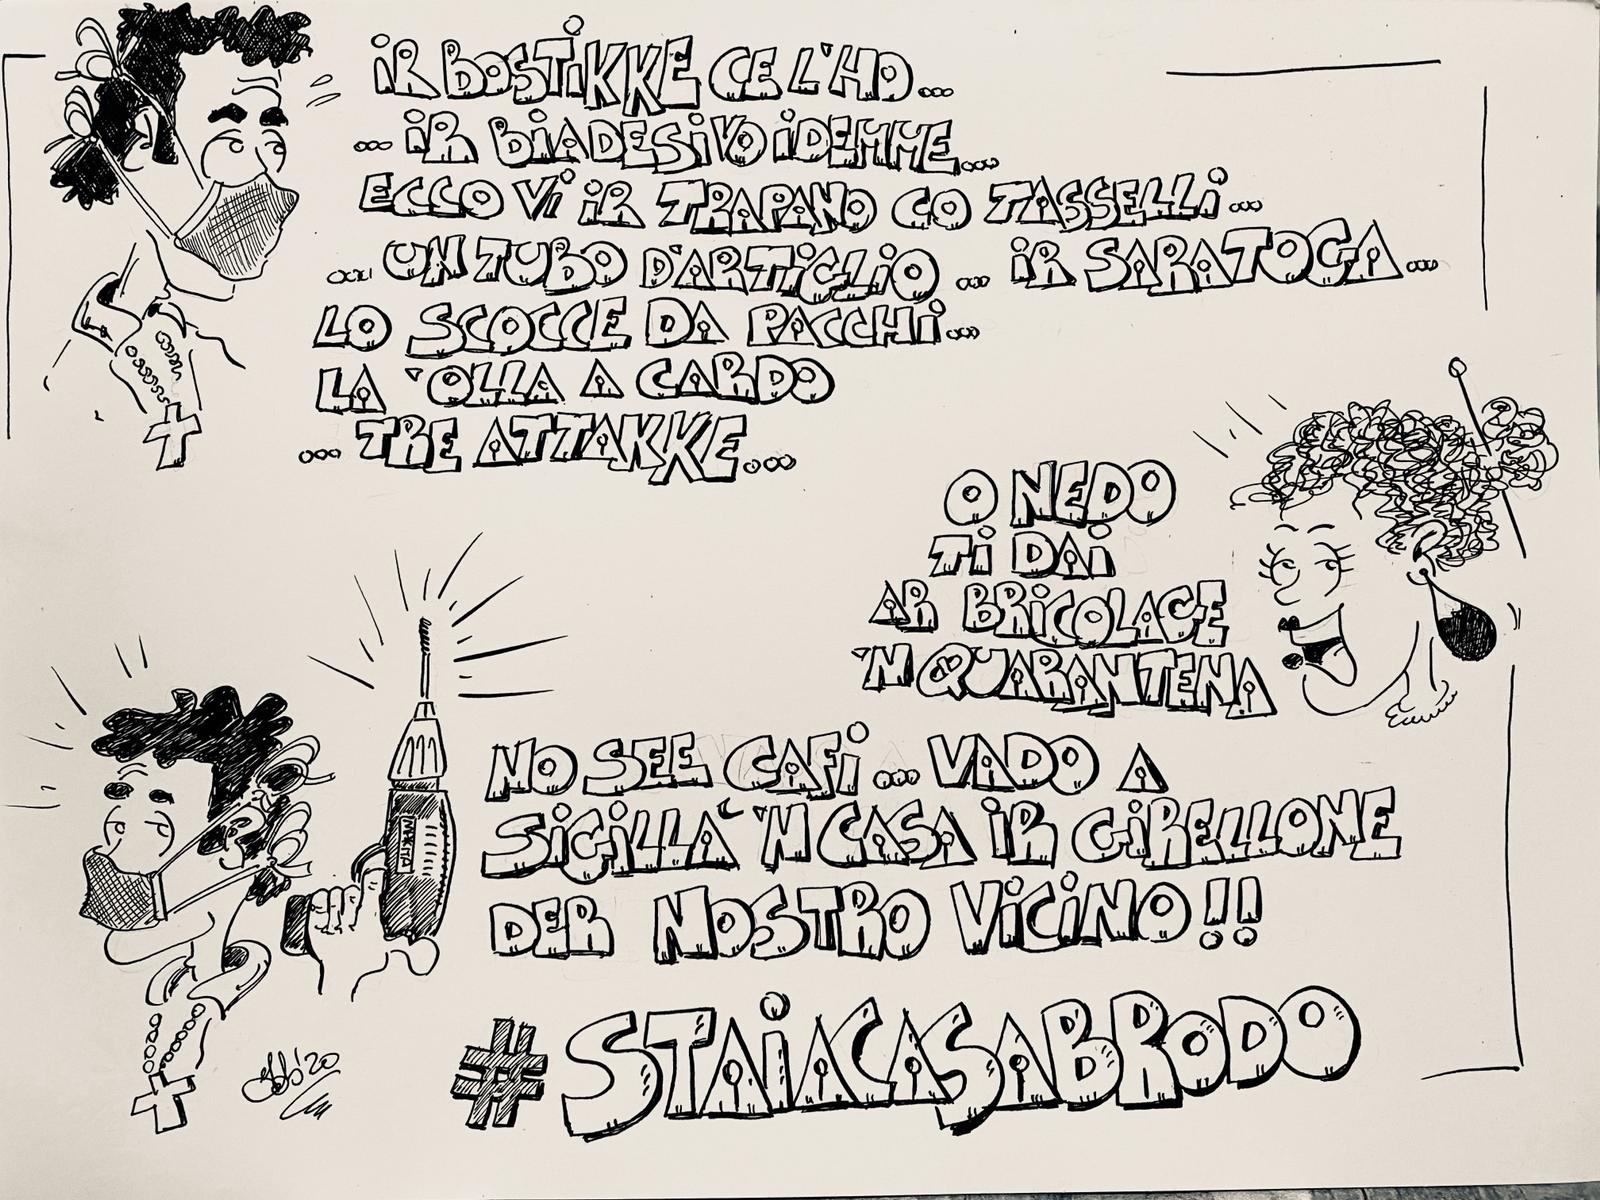 IR BOSTIKKE CE L'HO...
... IR BIADESIVO IDEMME...
ECCO VI IR TRAPANO CO TASSELLI...
... UN TUBO D'ARTIGLIO ... IR SARATOGA...
LO SCOCCE DA PACCHI...
LA 'OLLA A CARDO
... TRE ATTAKKE...
O NEDO
TI DAI
AR BRICOLAGE
'N QUARANTENA
MAKITA
NO SEE CAFI... VADO A
SIGILLA' 'N CASA IR GIRELLONE
DER NOSTRO VICINO!!
#STAIACASABRODO
'20